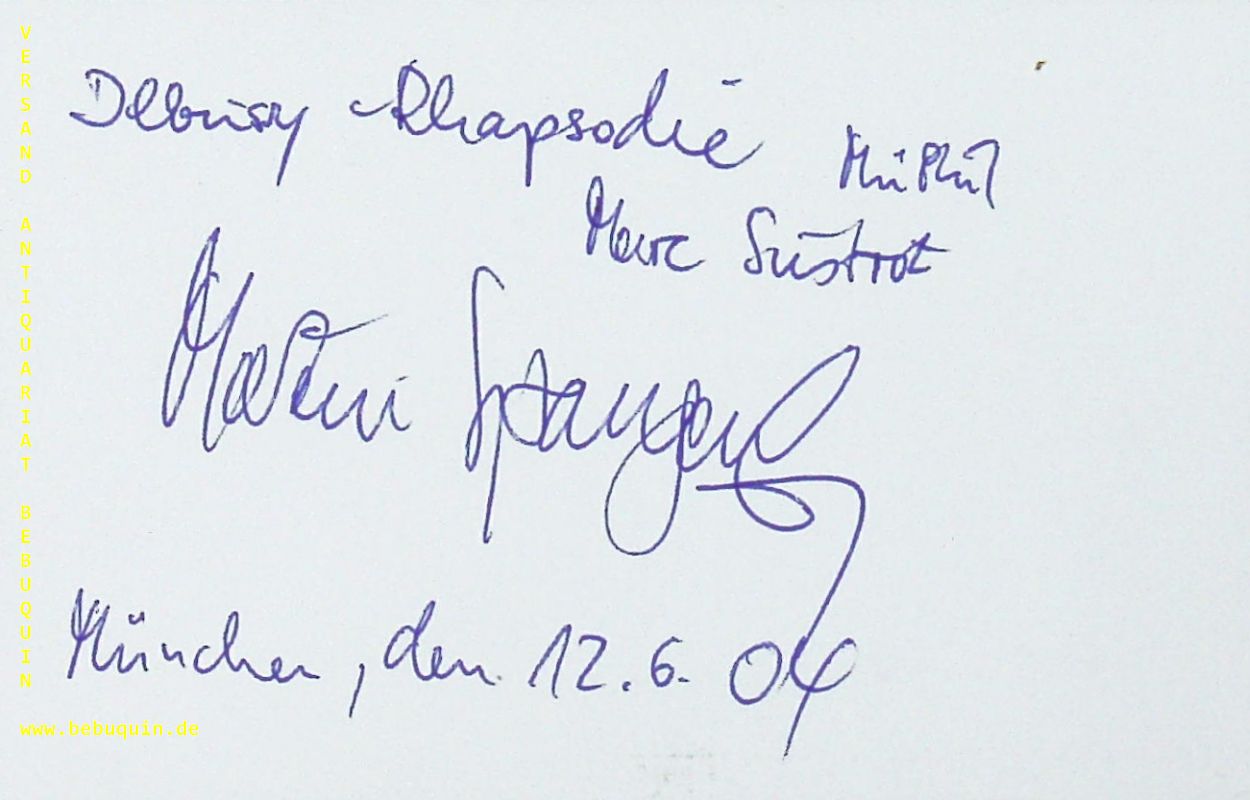 Debussy - Rhapsodie
MüPhil
Marc Sustrot
Martin Spangenberg
München, den 12.6.04
VERSAND ANTIQUARIAT BEBUQUIN
www.bebuquin.de